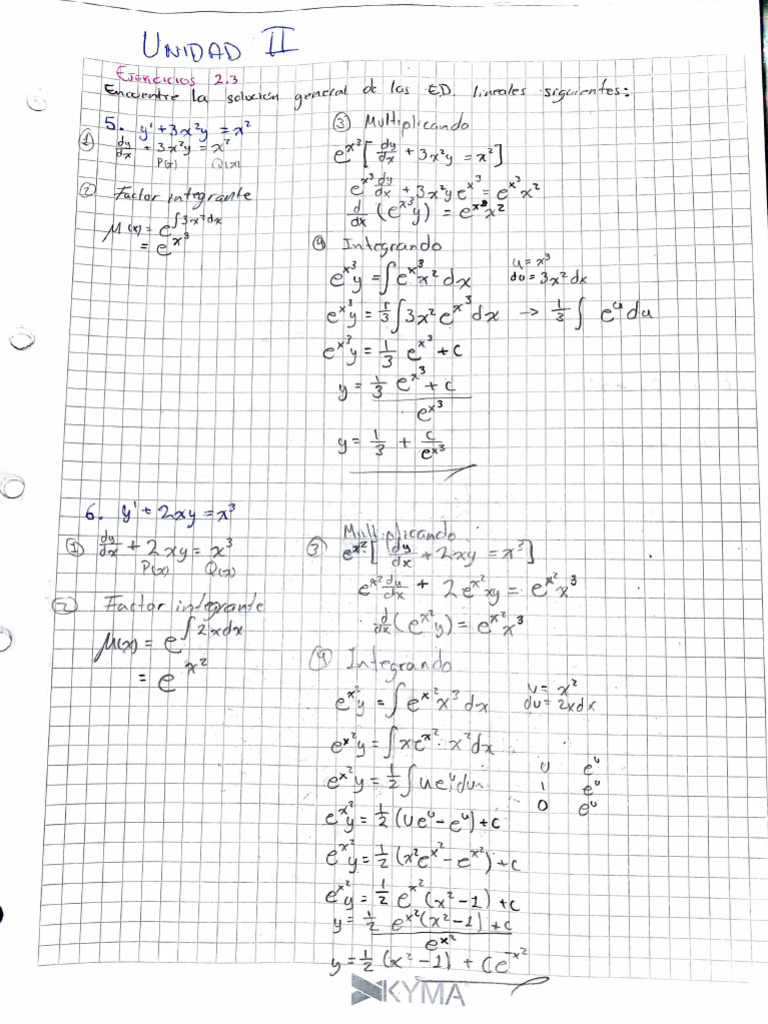 UNIDAD II
Ejercicios 2.3
Encuentre la solución general de las E.D. lineales siguientes:
5. y' + 3x²y = x²
① dy/dx + 3x²y = x²
P(x) Q(x)
② Factor integrante
μ(x) = e^∫3x²dx
= e^x³
③ Multiplicando
e^x³ [dy/dx + 3x²y = x²]
e^x³ dy/dx + 3x²y e^x³ = e^x³ x²
d/dx (e^x³ y) = e^x³ x²
④ Integrando
e^x³ y = ∫ e^x³ x² dx u = x³
du = 3x² dx
e^x³ y = 1/3 ∫ 3x² e^x³ dx → 1/3 ∫ e^u du
e^x³ y = 1/3 e^x³ + c
y = 1/3 e^x³ + c
e^x³
y = 1/3 + c/e^x³
6. y' + 2xy = x³
① dy/dx + 2xy = x³
P(x) Q(x)
② Factor integrante
μ(x) = e^∫2xdx
= e^x²
③ Multiplicando
e^x² [dy/dx + 2xy = x³]
e^x² dy/dx + 2e^x² xy = e^x² x³
d/dx (e^x² y) = e^x² x³
④ Integrando
e^x² y = ∫ e^x² x³ dx u = x²
du = 2xdx
e^x² y = ∫ x e^x² · x² dx
u e^u
e^x² y = 1/2 ∫ u e^u du
1 e^u
0 e^u
e^x² y = 1/2 (u e^u - e^u) + c
e^x² y = 1/2 (x² e^x² - e^x²) + c
e^x² y = 1/2 e^x² (x² - 1) + c
y = 1/2 e^x² (x² - 1) + c
e^x²
y = 1/2 (x² - 1) + C e^-x²
KYMA